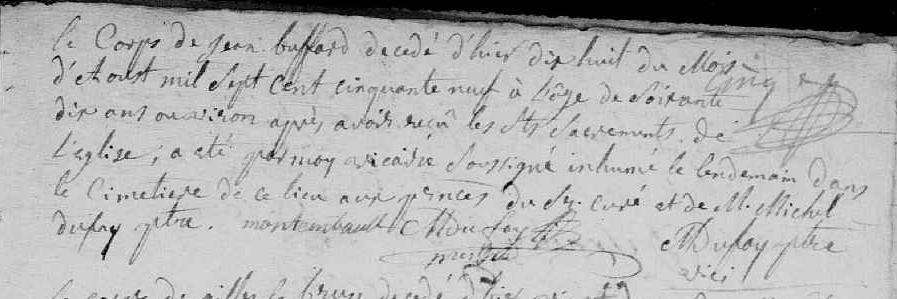 le Corps de jean buffard decedé d'hier dix huit du Mois
d'Aoust mil Sept Cent cinquante neuf à l'âge de Soixante
dix ans ou environ après avoir reçû les Sts Sacrements de
l'église, a eté par moy vicaire Soussigné inhumé le lendemain dans
le Cimetiere de ce lieu aux pnces du Sr. curé et de M. Michel
dufay ptre. montembault MDufay MDufay ptre
vici
le corps de gilles le brun decedé d'hier